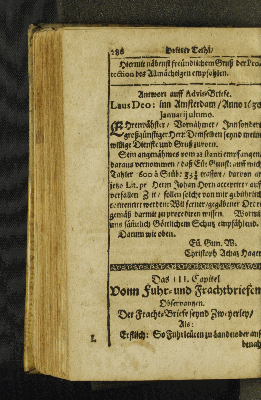 286 Dritter Theil/
Hiermit nähenst freundlichem Gruß der Pro-
tection des Allmächtigen empfohlen.
Antwort auff Advis-Briefe.
Laus Deo: inn Amsterdam / Anno 1630
Januarij ultimo.
EHrenvester / Vornähmer / Insonders
großgünstiger Herr. Demselben seynd meine
willige Dienste und Gruß zuvorn.
Sein angenähmes vom 22 stanti empfangen,
daraus vernommen / daß Eür
Tahler 600 à Stüb: 83¼ / darvon
jetzo Lit. pr Herrn Johan Horn acceptiret / auff
verfallen Zeit / sollen solche von mir gebührlich
contentiret werden: Will ferner gegebener Ordre
gemäß darmit zu procediren wissen. Wormit
uns sämtlich Göttlichem Schutz empfählend.
Datum wie oben.
Eü. Gun. W.
Christoph Achatz Hager
Das III. Capitel
Vonn Fuhr- und Frachtbriefen
Observannen.
Der Fracht-Briefe seynd Zweyerley /
Als:
Erstlich: So Fuhrleüten zu Lande oder auf
I. benah